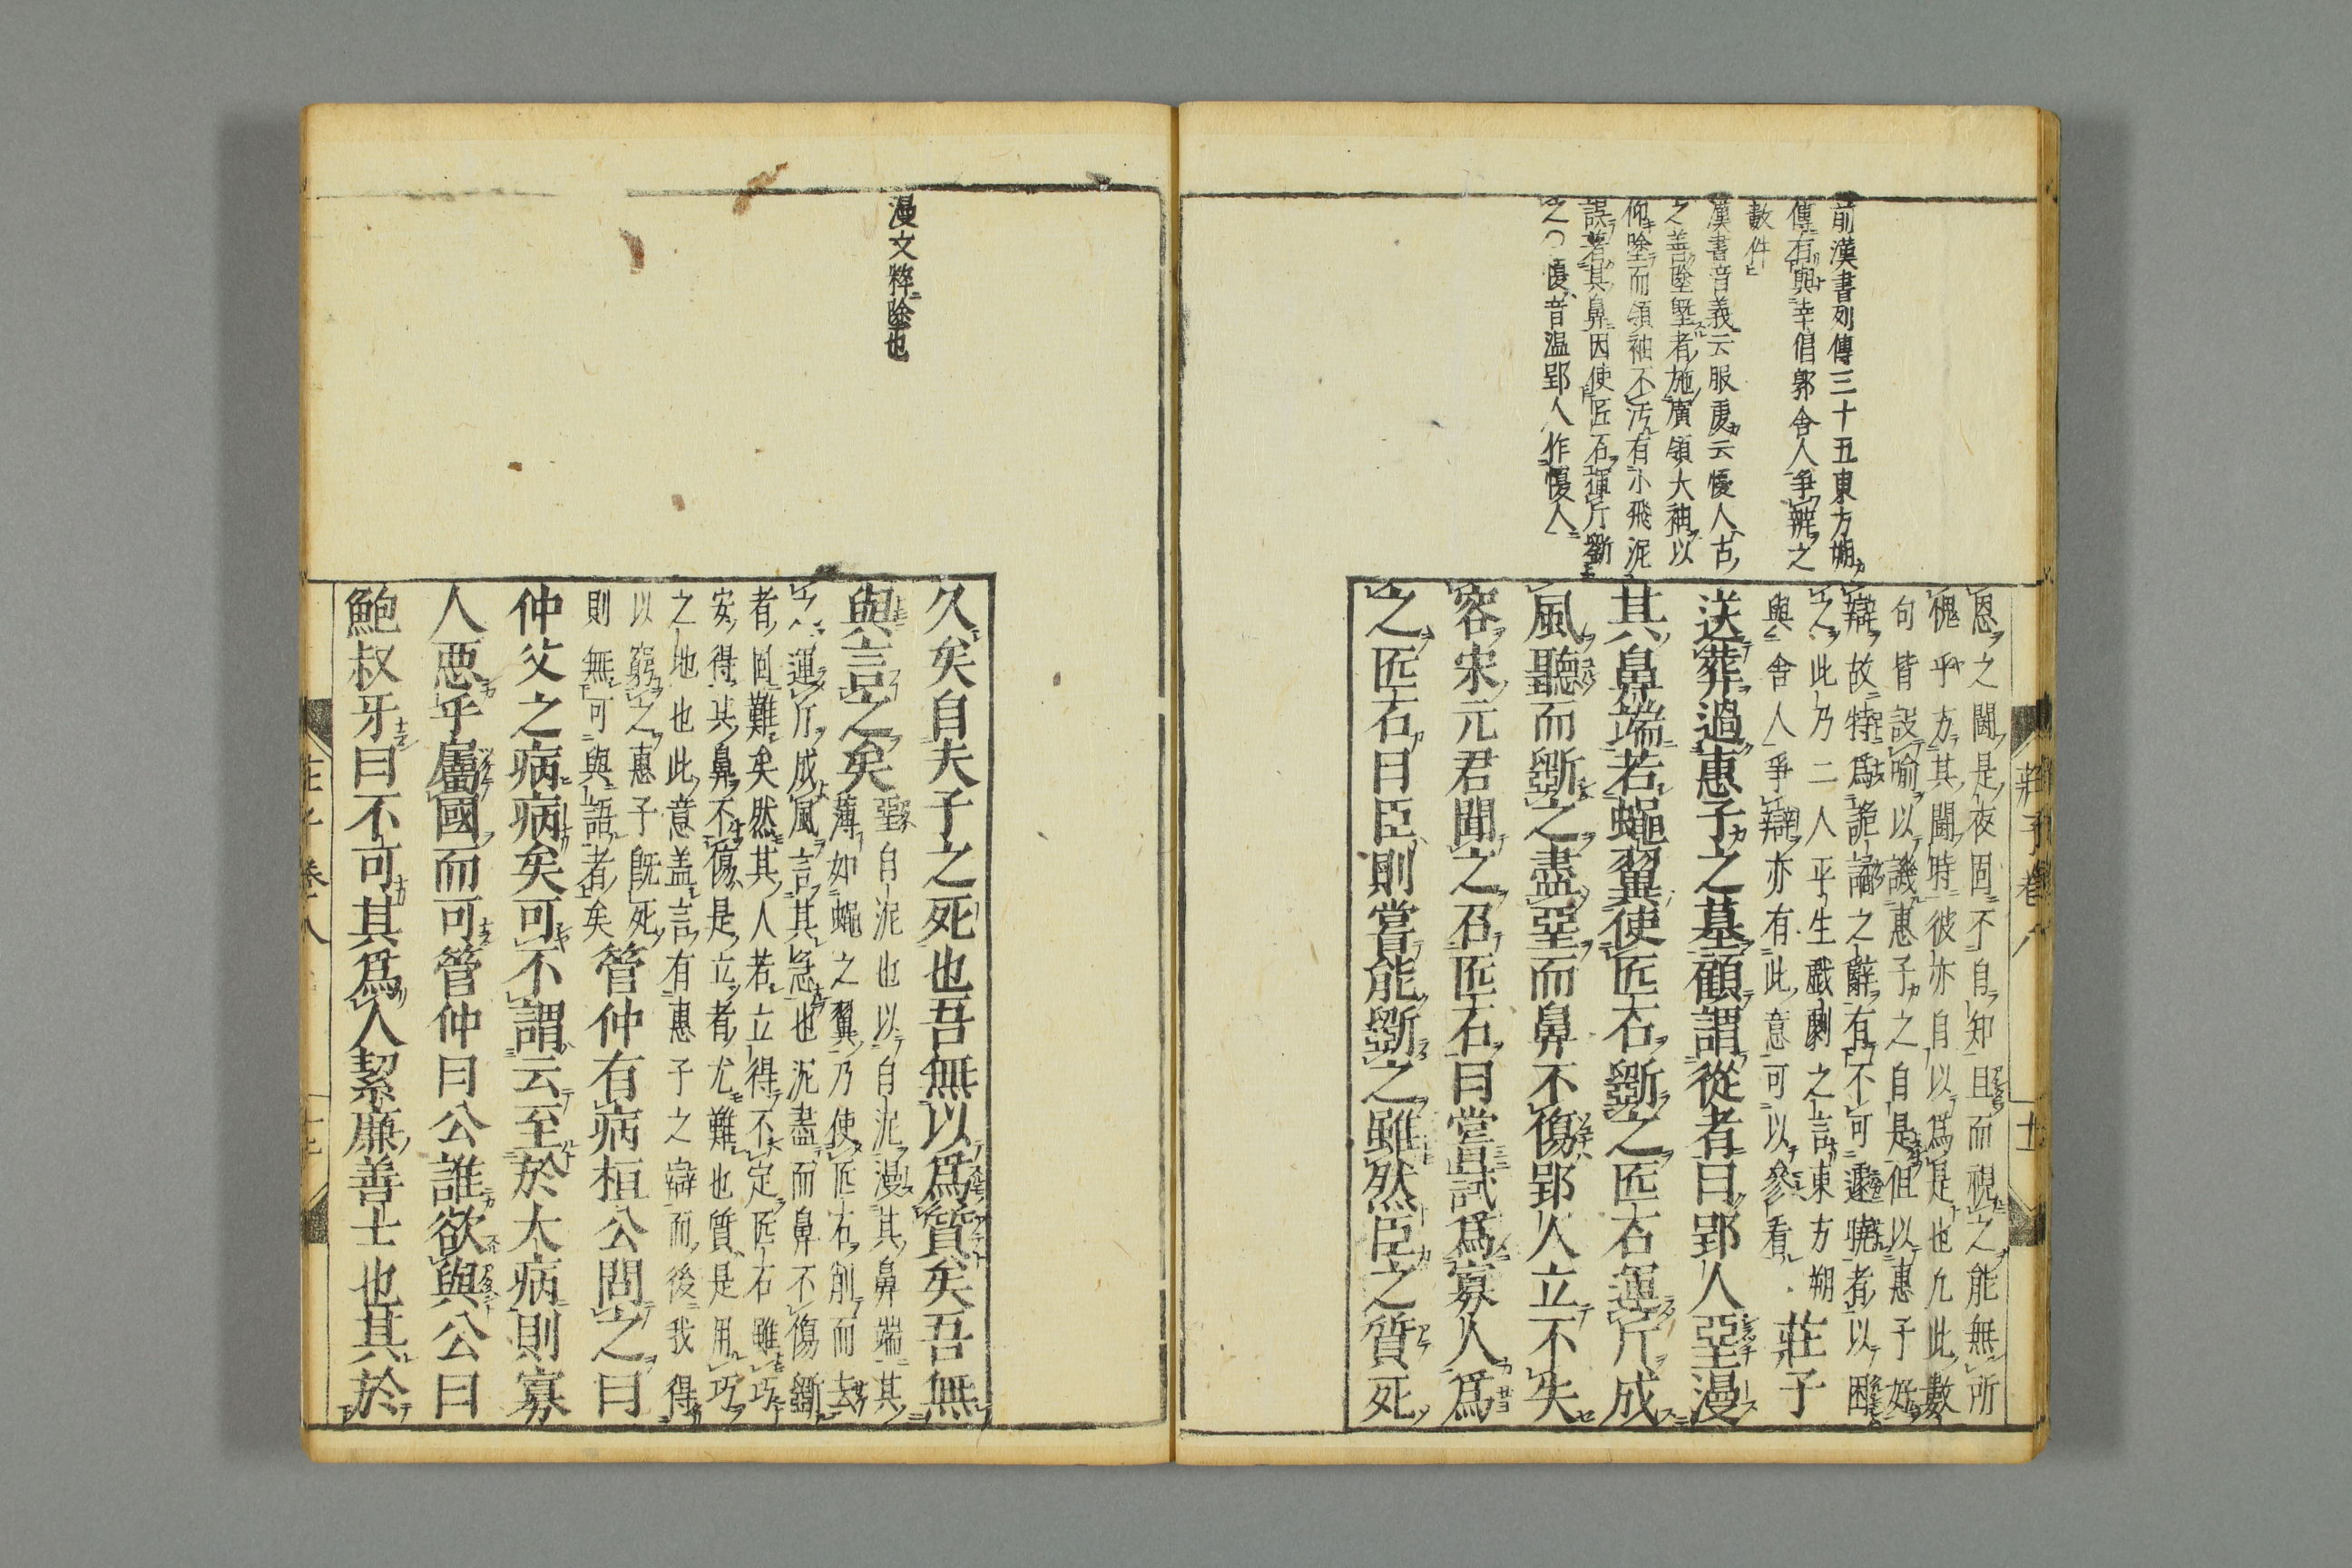 前漢書列傳三十五東方朔
傳有與幸倡郭舍人爭辨之
數件
漢書音義云服虔云慢人古
之善塗墍者施廣領大袖以
仰塗而領袖不汚有小飛泥
誤著其鼻因使匠石揮斤斲
之〇慢音温郢人作慢人
恩之鬪是夜固不自知且而視之能無所
愧乎方其鬪時彼亦自以爲是也凡此數
句皆設喻以譏惠子之自是但以惠子好
辯故特爲詭譎之辭有不可遽曉者以困
之此乃二人平生戲劇之言東方朔
與舍人爭辯亦有此意可以參看莊子
送葬過惠子之墓顧謂從者曰郢人堊漫
其鼻端若蠅翼使匠石斲之匠石運斤成
風聽而斲之盡堊而鼻不傷郢人立不失
容宋元君聞之召匠石曰嘗試爲寡人爲
之匠石曰臣則嘗能斲之雖然臣之質死
莊子卷八
漫文粹塗也
久矣自夫子之死也吾無以爲質矣吾無
與言之矣堊自泥也以自泥漫其鼻端其
薄如蠅之翼乃使匠石削而去
之運斤成風言其急也泥盡而鼻不傷斲
者固難矣然其人若立得不定匠石雖巧
安得其鼻不傷是立者尤難也質是用巧
之地也此意盖言有惠子之辯而後我得
以窮之惠子旣死
則無可與語者矣管仲有病桓公問之曰
仲父之病病矣可不謂云至於大病則寡
人惡乎屬國而可管仲曰公誰欲與公曰
鮑叔牙曰不可其爲人絜廉善士也其於
莊子卷八